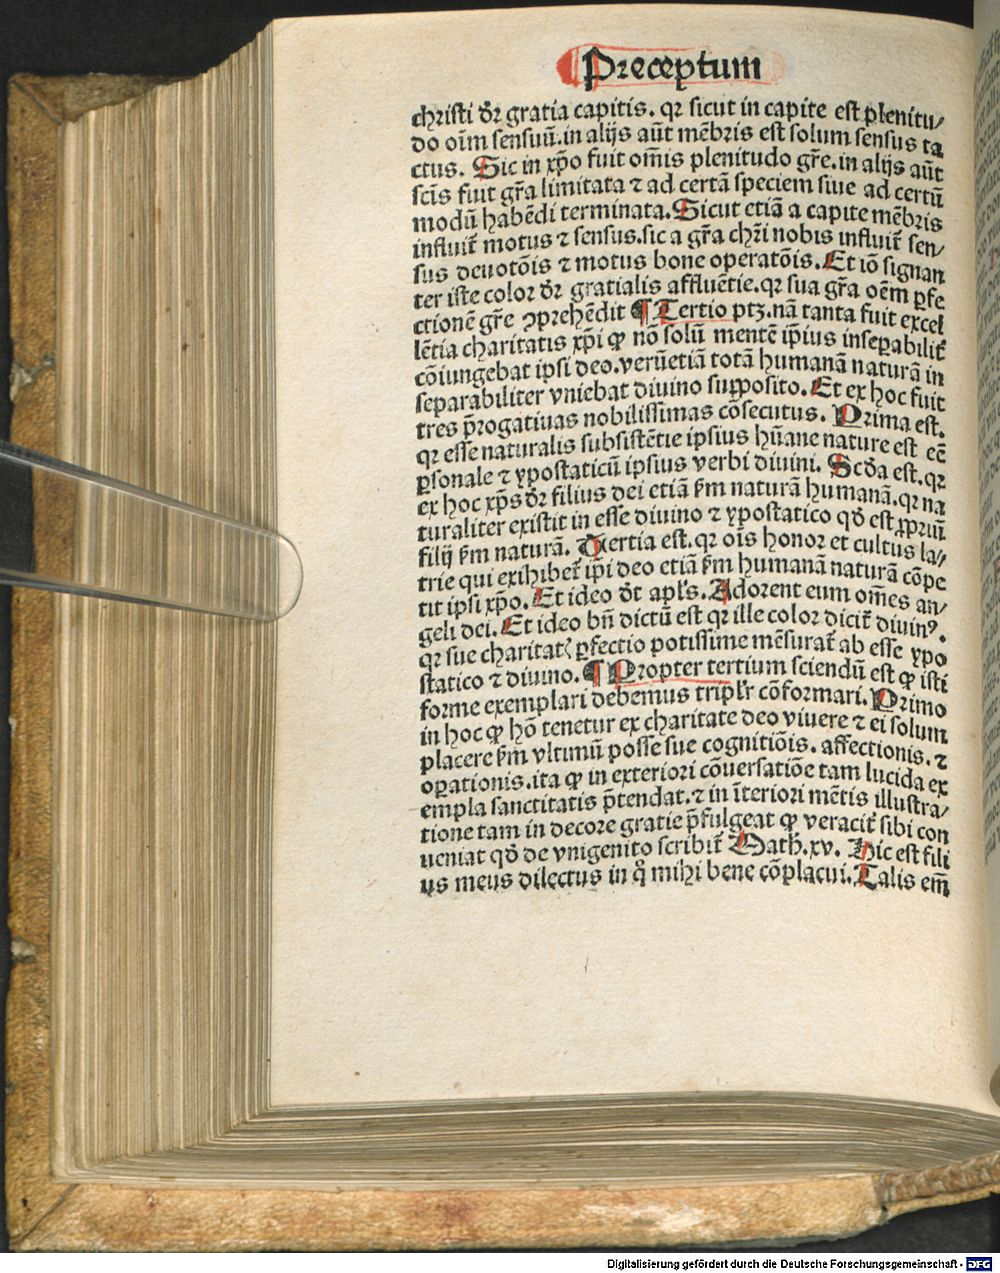 Preceptum
christi dr̄ gratia capitis. qr sicut in capite est plenitu⸗
do oīm sensuū. in alijs aūt mēbris est solum sensus ta
ctus. Sic in xp̄o fuit om̄is plenitudo gr̄e. in alijs aūt
scīs fuit gr̄a limitata ⁊ ad certā speciem siue ad certū
modū habēdi terminata. Sicut etiā a capite mēbris
influit̄ motus ⁊ sensus. sic a gr̄a chr̄i nobis influit̄ sen⸗
sus deuotōis ⁊ motus bone operatōis. Et iō signan
ter iste color dr̄ gratialis affluētie. qr sua gr̄a oēm ꝑfe
ctionē gr̄e ꝯprehēdit ¶ Tertio ptꝫ. nā tanta fuit excel
lētia charitatis xp̄i ꝙ nō solū mentē ip̄ius inseꝑabilit̄
cōiungebat ipsi deo. verūetiā totā humanā naturā in
separabiliter vniebat diuino supposito. Et ex hoc fuit
tres p̄rogatiuas nobilissimas cōsecutus. Prima est.
qr esse naturalis subsistētie ipsius hūane nature est eē
ꝑsonale ⁊ ypostaticū ipsius verbi diuini. Scd̄a est. qr
ex hoc xp̄s dr̄ filius dei etiā ẜm naturā humanā. qr na
turaliter existit in esse diuino ⁊ ypostatico qd̄ est ꝓpriū
filij ẜm naturā. Tertia est. qr oīs honor et cultus la⸗
trie qui exihibet̄ ip̄i deo etiā ẜm humanā naturā cōpe
tit ipsi xp̄o. Et ideo dt̄ apl̄s. Adorent eum om̄es an⸗
geli dei. Et ideo bn̄ dictū est qr ille color dicit̄ diuinꝰ.
qr sue charitatꝭ ꝑfectio potissime mēsurat̄ ab esse ypo
statico ⁊ diuino. ¶ Propter tertium sciendū est ꝙ isti
forme exemplari debemus triplr̄ cōformari. Primo
in hoc ꝙ hō tenetur ex charitate deo viuere ⁊ ei solum
placere ẜm vltimū posse sue cognitiōis. affectionis. ⁊
oꝑationis. ita ꝙ in exteriori cōuersatiōe tam lucida ex
empla sanctitatis p̄tendat. ⁊ in īteriori mētis illustra⸗
tione tam in decore gratie p̄fulgeat ꝙ veracit̄ sibi con
ueniat qd̄ de vnigenito scribit̄ Math. xv. Hic est fili
us meus dilectus in q̊ mihi bene cōplacui. Talis em̄
Digitalisierung gefördert durch die Deutsche Forschungsgemeinschaft - DFG